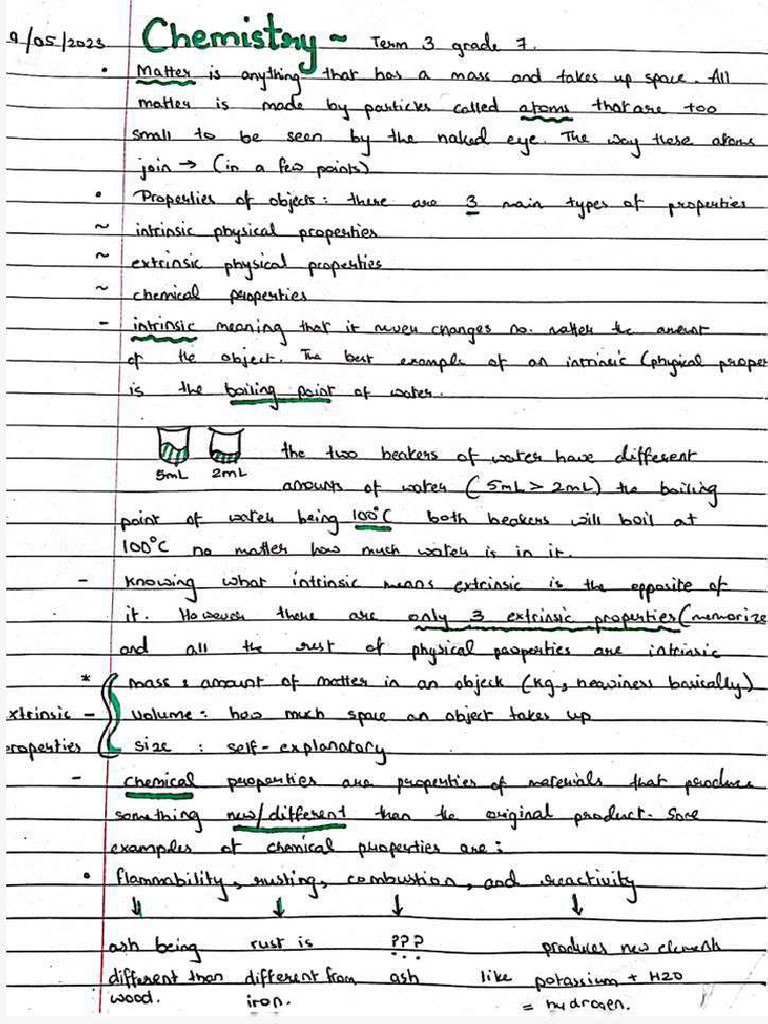 9/05/2023 Chemistry ~ Term 3 grade 7.
• Matter is anything that has a mass and takes up space. All
matter is made by particles called atoms that are too
small to be seen by the naked eye. The way these atoms
join → (in a few points)
• Properties of objects: there are 3 main types of properties
~ intrinsic physical properties
~ extrinsic physical properties
~ chemical properties
- intrinsic meaning that it never changes no. matter the amount
of the object. The best example of an intrinsic (physical proper
is the boiling point of water.
the two beakers of water have different
5mL 2mL
amounts of water (5mL > 2mL) the boiling
point of water being 100°C both beakers will boil at
100°C no matter how much water is in it.
- knowing what intrinsic means extrinsic is the opposite of
it. However there are only 3 extrinsic properties (memorize
and all the rest of physical properties are intrinsic
* mass: amount of matter in an object (kg, heaviness basically)
xtrinsic - volume: how much space an object takes up
roperties size : self-explanatory
- chemical properties are properties of materials that produce
something new/different than the original product. Some
examples of chemical properties are:
• flammability, rusting, combustion, and reactivity
↓ ↓ ↓ ↓
ash being rust is ??? produces new elements
different than different from ash like potassium + H2O
wood. iron. = hydrogen.